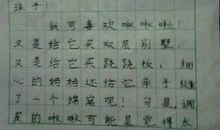 孩子!
我可喜欢啾啾啦!
又是给它买双层别墅,
又是给它买跳跳板,细
心的妈妈还给它亲手做
了一个绵窝呢!可是,调
皮的啾啾可能是觉得太